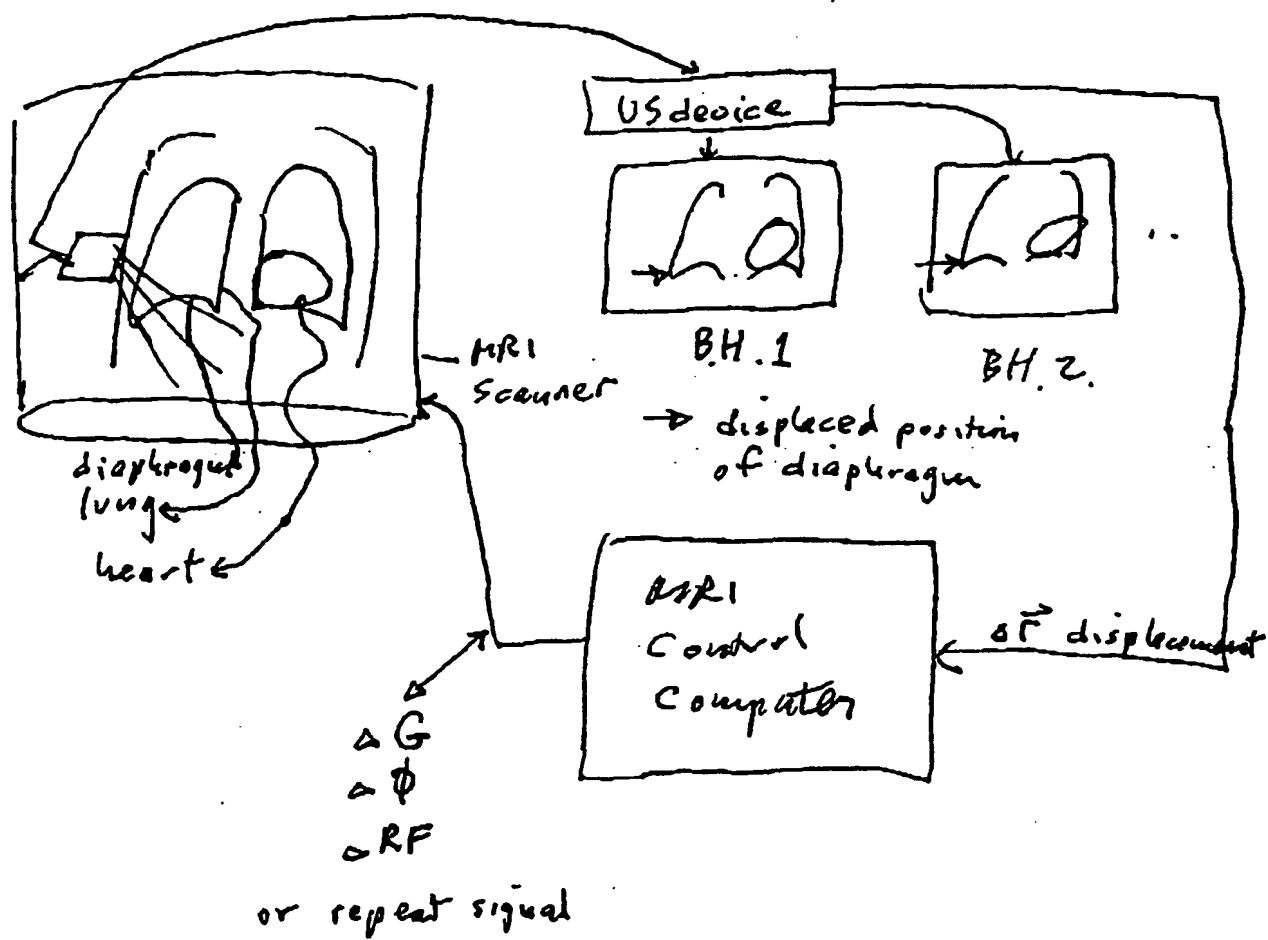 US device
B.H. 1
B.H. 2.
MRI
Scanner
→ displaced position
of diaphragm
diaphragm
lung
heart
MRI
Control
Computer
Δr⃗ displacement
Δ G
Δ ϕ
Δ RF
or repeat signal